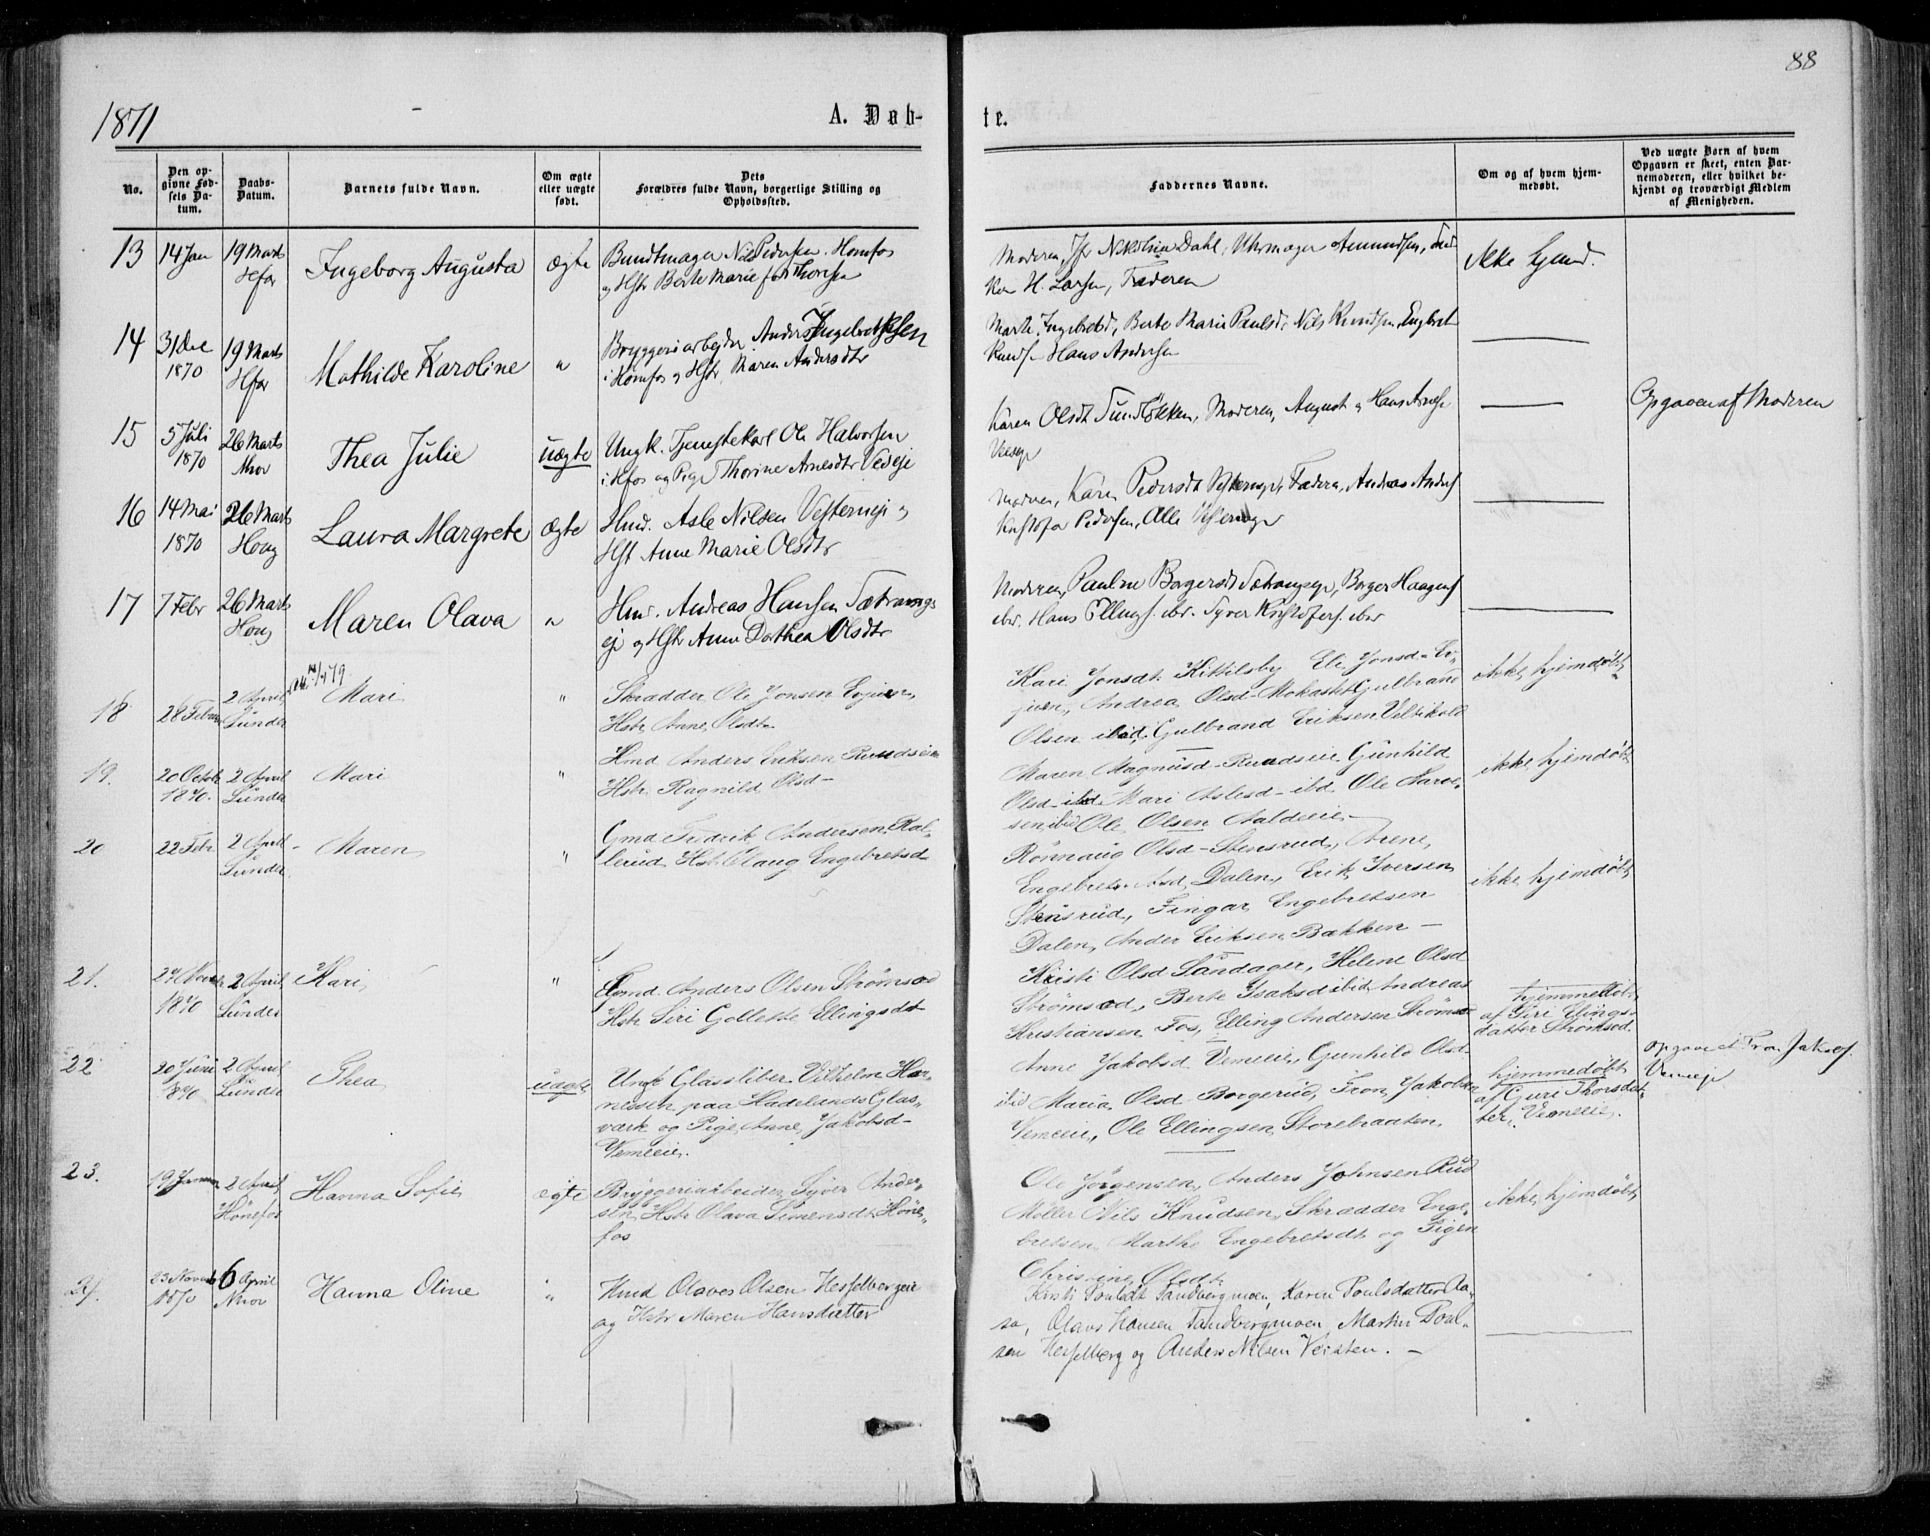 88
1871
A. Døb-
te.
No.
Den op-
givne Fød-
sels Da-
tum.
Daabs-
Datum.
Barnets fulde Navn.
Om ægte
eller uægte
født.
Dets
Forældres fulde Navn, borgerlige Stilling og
Opholdssted.
Faddernes Navne.
Om og af hvem hjem-
medøbt.
Ved uægte Børn af hvem
Opgaven er skeet, enten Bar-
nemoderen, eller hvilket be-
kjendt og troværdigt Medlem
af Menigheden.
13
14 Jan
19 Marts
Hfos
Ingeborg Augusta
ægte
Bundtmager Nils Pedersen Honfos
og Hstr Berte Marie f Thorsen
Moderen, Jfr Nikoline Dahl, Uhrmager Amundsen,
H. Larsen, Faderen
ikke hjmd.
14
31 Dec
1870
19 Marts
Hfos
Mathilde Karoline
"
Bryggeriarbeider Anders Ingebretsen
i Honfos og Hstr Maren Andersdtr
Marte Ingebretsd, Berte Marie Paulsd, Nils Knudsen, Engebret
Knuds Hans Andersen
15
5 Juli
1870
26 Marts
Nrov
Thea Julie
uægte
Ungk. Tjenestekarl Ole Halvorsen
i Hfos og Pige Thorine Arnesdtr Vedeje
Karen Olsdt Tundløkken, Moderen, August og Hans Arnes
Opgaven af Moderen
16
14 Mai
1870
26 Marts
Houg
Laura Margrete
ægte
Hmd. Asle Nilsen Vesterneje og
Hst Anne Marie Olsdtr
Moderen, Karen Pedersdt, Faderen, Andreas Anders
Kristofer Pedersen, Alle
17
7 Febr
26 Marts
Houg
Maren Olava
"
Hmd. Andreas Hansen Sætrangs
eje og Hstr Anne Dorthea Olsdtr
Moderen, Pauline Borgersdt Sætrangeje, Borger Haagens
ibr. Hans Ellings. ibr. Syver Kristofers. ibr
18
28 Febru
2 April
Lunder
Att 14/4 79
Mari
"
Skrædder Ole Jonsen Evjuen
Hstr Anne Olsdt
Kari Jonsdt Kittilsby Eli Jonsd Ev-
juen, Andrea Olsd Mokastet Gulbrand
Olsen ibid, Gulbrand Eriksen Veltikold
ikke hjemdøbt
19.
20 Octbr
1870.
2 April
Lunder
Mari
"
Hmd Anders Eriksen Ruudseie
Hstr Ragnild Olsd-
Maren Magnusd Ruudseie Gunhild
Olsd ibid Mari Aslesd ibd Ole Narve-
sen ibid Ole Olsen Aaldeeie
ikke hjemdøbt
20
22 Febr
2 April
Lunder
Maren
"
Gmd Fredrik Andersen Kol-
lerud Hstr Olaug Engebretsd
Rønnaug Olsd Stensrud, Arene
Engebretsd Dalen, Erik Iversen
Stensrud, Fingar Engebretsen
Dalen, Ander Eriksen Bakken
ikke hjemdøbt
21.
27 Novbr
1870
2 April
Lunder
Kari
"
Gmd. Anders Olsen Strømsod
Hstr Siri Gollette Ellingsdt
Kristi Olsd Sandager, Helene Olsd
Strømsod, Berte Isaksd ibid Andreas
Kristiansen Fos, Elling Andersen Strømsod
hjemmedøbt
af Siri Ellings-
datter Strømsod.
22
20 Juni
1870
2 April
Lunder
Thea
uægte
Ungk Glassliber Vilhelm Har-
nessen paa Hadelands Glas-
værk og Pige Anne Jakobsd
Vemeeie.
Anne Jakobsd Vemeeie, Gunhild Olsd
ibid Maria Olsd Borgerud, Tron Jakobsen
Vemeeie, Ole Ellingsen Storebraaten.
hjemmedøbt
af Guri Thorsdat-
ter, Vemeeie.
Opgave af Tron Jakobs.
Vemeje
23.
19 Januar
2 April
Hönefos
Hanna Sofie
ægte
Bryggeriarbeider Syver Ander-
sen Hstr Olava Simensdt Høne-
fos
Ole Jørgensen, Anders Johnsen Rud
Møller Nils Knudsen, Skrædder Enge-
bretsen, Marthe Engebretsdt og Pigen
Christine Olsdt.
ikke hjemdøbt
24.
23 Novbr
1870
6 April
Nrov
Hanna Oline
"
Hmd Olaves Olsen Hesselbergeie
og Hstr Maren Hansdatter
Kirsti Poulsdt Tandbergmoen, Karen Poulsdatter Aa-
sa, Olavs Hansen Tandbergmoen, Martin Poul-
sen Hesselberg og Anders Nilsen Veisten.